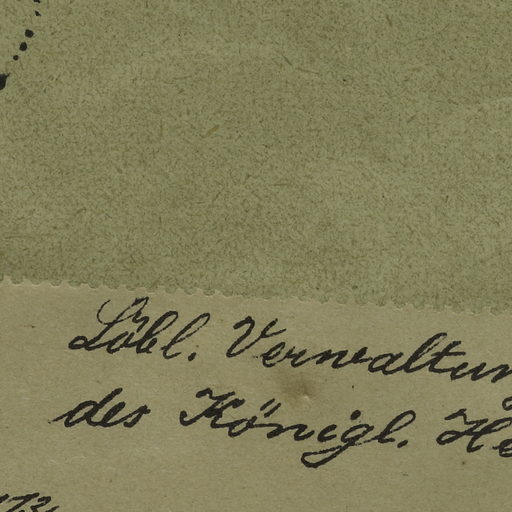 Löbl. Verwaltun
des Königl. He